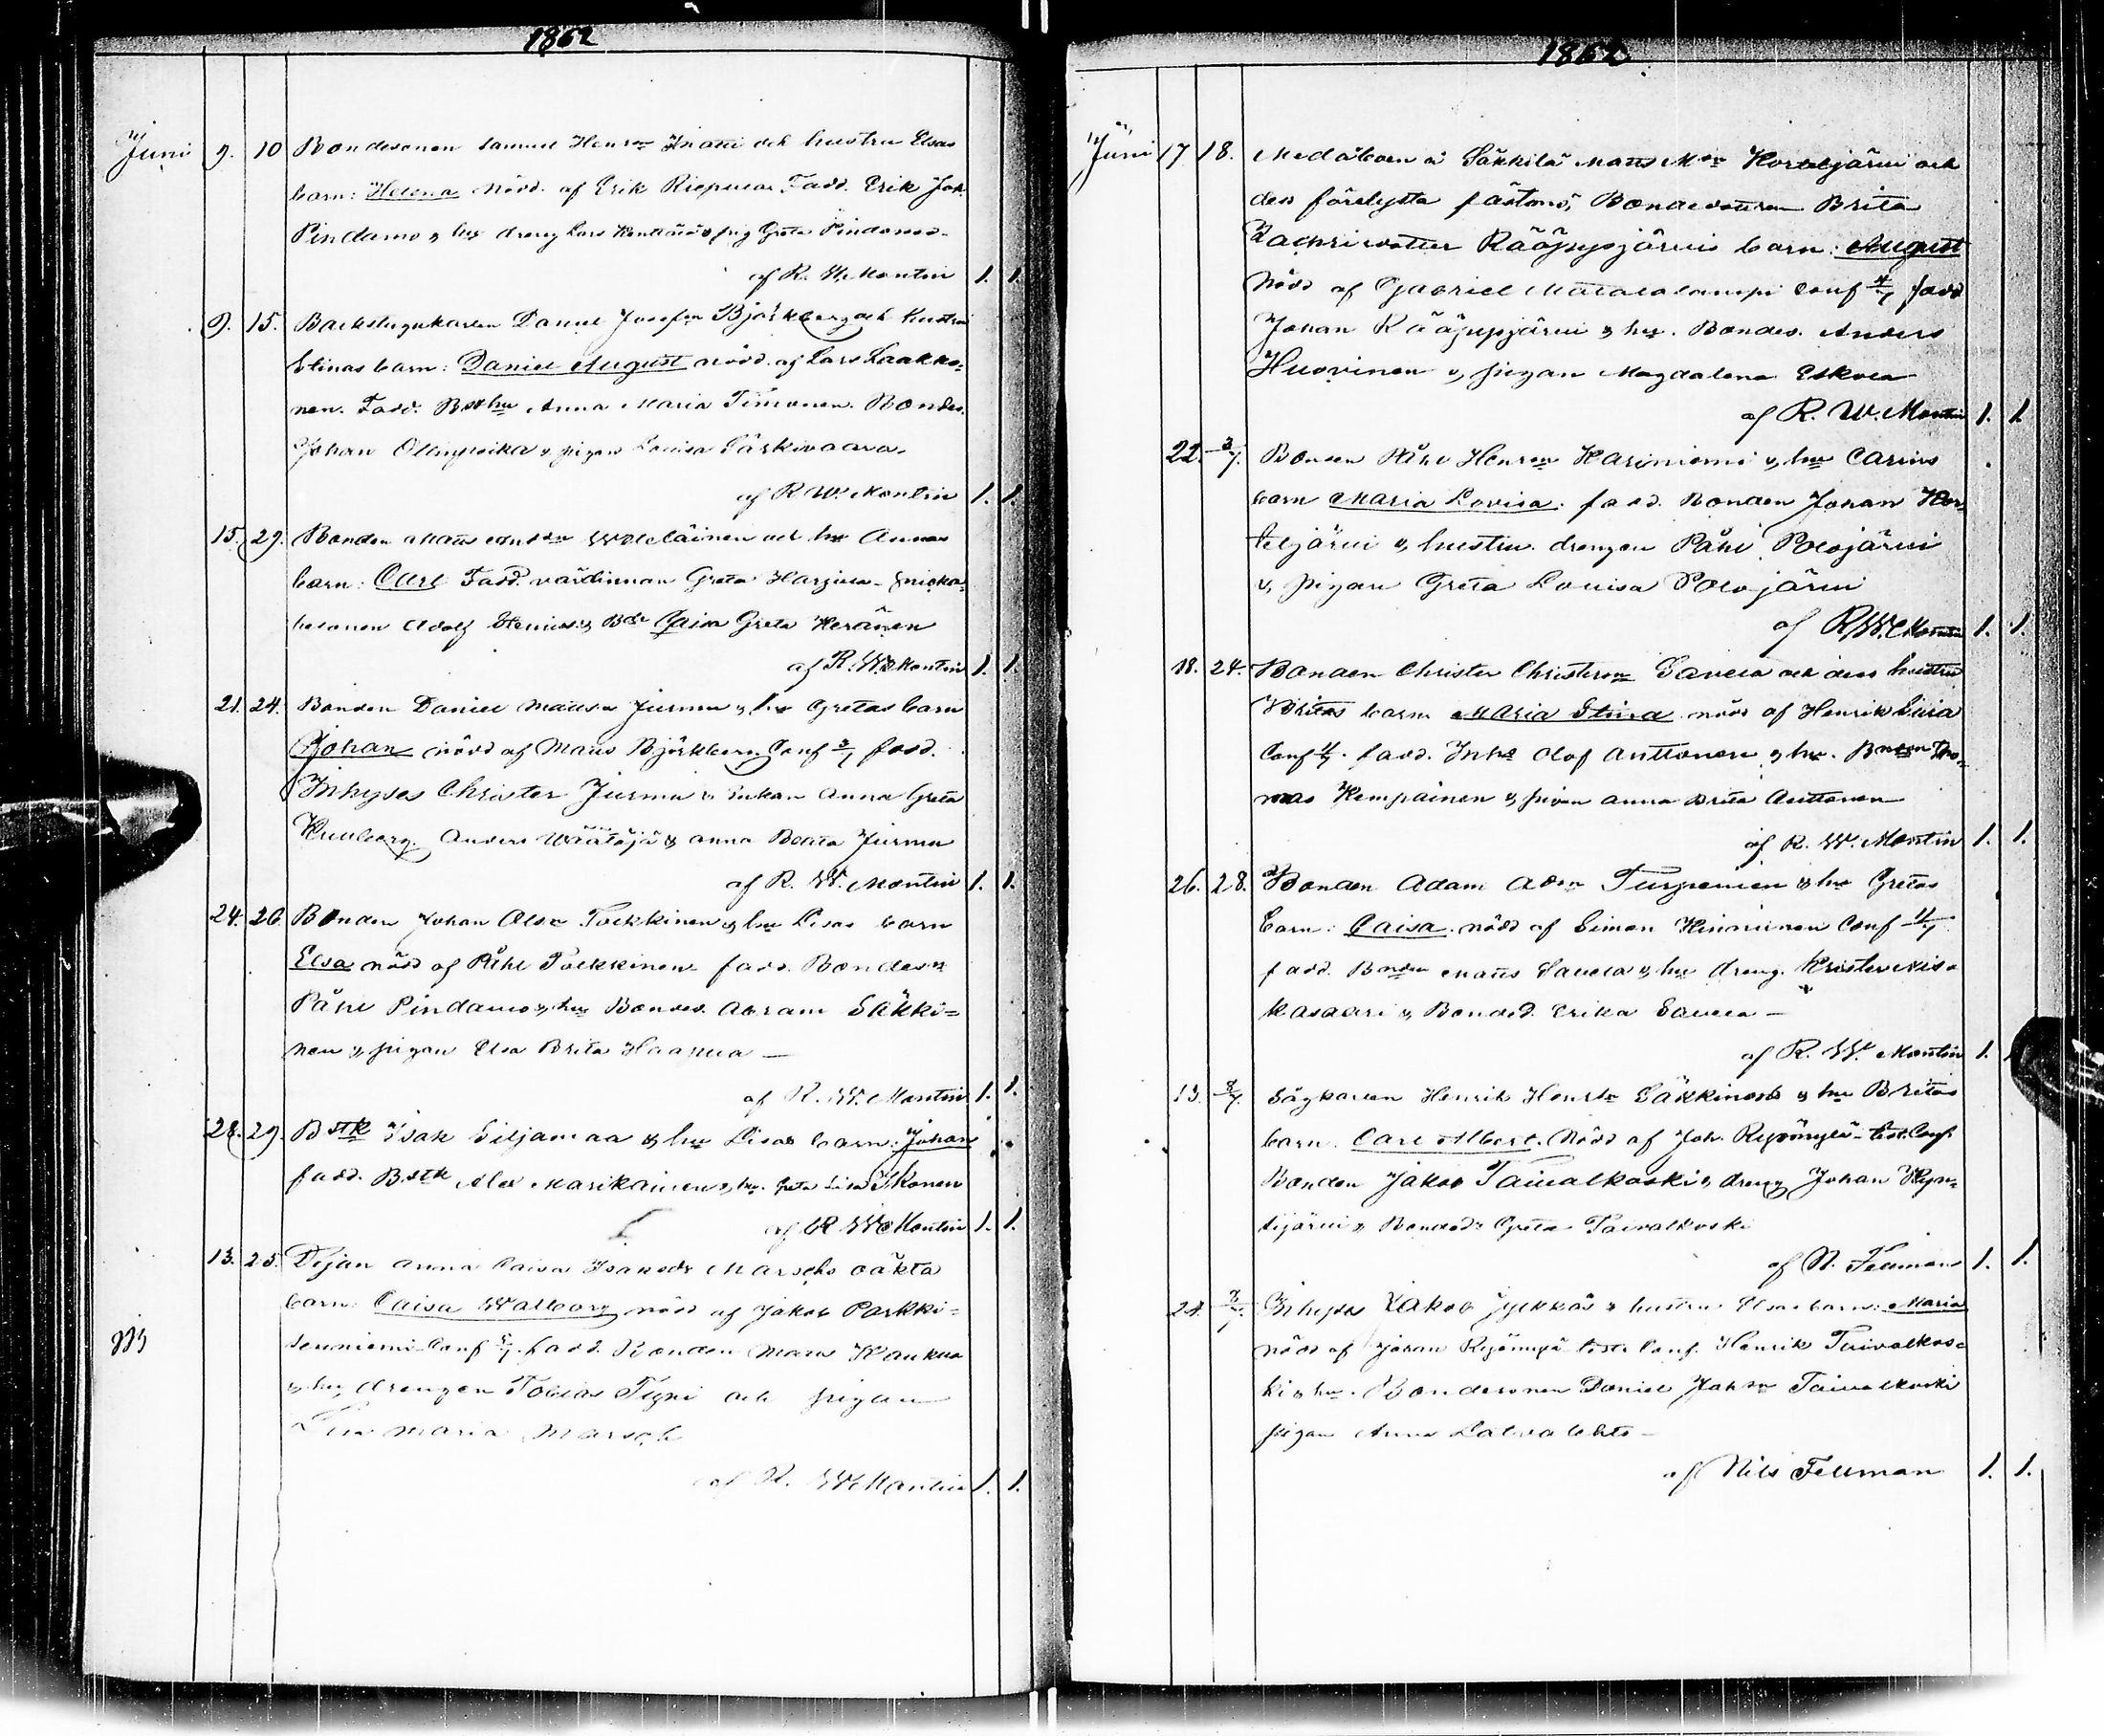 1862
Juni 9. 10 Bondesonen Samuel Henrsn Knatti och hustru Elsas
barn: Helena Nödd. af Erik Riepula Fadd. Erik Joh.
Pindamo & hu dreng Lars Kenttälä & pig Greta Pindamo.
af R. W. Montin 1. 1.
9. 15. Backstugukarlen Daniel Josefsn Björkberg och hustru
Stinas barn: Daniel August nödd. af Lars Laakko-
nen. Fadd. Bsthu Anna Maria Timonen. Bondes.
Johan Ollinpoika & pigan Lovisa Särkivaara.
af R W. Montin 1. 1.
15. 29. Bonden Matts och hu Annas
barn: Carl Fadd. värdinnan Greta Harjula
Adolf & Caisa Greta Heränen
af R. W. Montin 1. 1.
21. 24. Bonden Daniel Mattsn Jurmu & hu Gretas barn
Johan nödd af Matts Björkberg Conf 3/7 fadd.
Inhyses Christer Jurmu & enkan Anna Greta
Kullberg. Anders Wäätäjä & Anna Beata Jurmu
af R. W. Montin 1. 1.
24. 26. Bonden Johan Olsn Tolkkinen & hu Lisas barn
Elsa nödd af Påhl Tolkkinen fadd. Bondesn
Påhl Pindamo & hu Bondes. Abram Säkki-
nen & pigan Elsa Brita Haapua
af R. W. Montin 1. 1.
28. 29. Bstk Isak Siljamaa & hu Lisas barn: Johan
fadd. Bstk Alex Marikainen & hu. Greta Lisa Ikonen
af R W Montin 1. 1.
13. 25. Pigan Anna Caisa Isaksdr Marschs oäkta
barn: Caisa Walborg nödd af Jakob Parkki-
senniemi Conf 5/7. fadd. Bonden Matts Kaukua
& hu, drengen Tobias Typi och pigan
Lisa Maria Marsch
af R. W. Montin 1. 1.
1862
Juni 17 18. Medåboen å Säkkilä Matts Mson Horteljärvi och
des förelofta fästmö, Bondedottren Brita
Zachrisdotter Rääpysjärvis barn: August
Nödd af Gabriel Matalalampi Conf 4/7 fadd
Johan Rääpysjärvi & hu. Bondes. Anders
Huovinen & pigan Magdalena Eskola
af R. W. Montin 1. 1.
22. 3/7. Bonden Påhl Henrsn Kariniemi & hu Carins
barn Maria Lovisa. fadd. Bonden Johan Hor-
teljärvi & hustru. drengen Påhl Polojärvi
& pigan Greta Lovisa Polojärvi
af R. W. Montin 1. 1.
18. 24. Bonden Christer Christerson Savela och dess hustru
Britas barn Maria Stina nödd af Henrik Siira
Conf 4/7. fadd. Inhs Olof Anttonen & hu. Bndsn Tho-
mas Kempainen & pigan Anna Brita Anttonen
af R. W. Montin 1. 1.
26. 28. Bonden Adam Adsn Turpeinen & hu Gretas
barn: Caisa. nödd af Simon Heinninen Conf 4/7
fadd. Bonden Matts Savela & hu dreng. Krister Kis-
kasaari & Bonded. Erika Savela
af R. W. Montin 1.
13. 8/7. Sågkarlen Henrik Henrsn Säkkinens & hu Britas
barn. Carl Albert. Nödd af Joh. Repänylä - test. Conf
Bonden Jakob Taivalkoski & dreng Johan Kyn-
sijärvi & Bondedr Greta Taivalkoski
af N. Fellman 1. 1.
24. 3/7. Inhyses Jakob Jylkkäs & hustru Elsas barn: Maria
nödd af Johan Repänylä test. Conf. Henrik Taivalkos-
ki & hu. Bondesonen Daniel Jaksn Taivalkoski
pigan Anna Latvalehto
af Nils Fellman 1. 1.